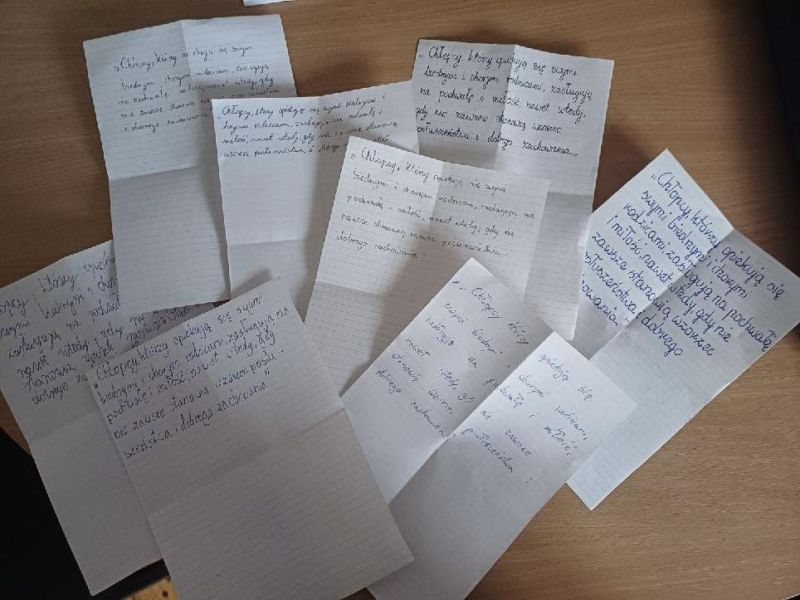 „Chłopcy, którzy
biednym i chorym rodzicami, zasługują
na pochwałę
nie zawsze
i dobrego
„Chłopcy, którzy opiekują się swymi biednymi i
chorymi rodzicami, zasługują na pochwałę i
miłość, nawet wtedy, gdy nie zawsze stanowią
wzorzec posłuszeństwa i dobrego
„Chłopcy, którzy opiekują się swymi
biednymi i chorymi rodzicami, zasługują
na pochwałę i miłość, nawet wtedy,
gdy nie zawsze stanowią wzorzec
posłuszeństwa i dobrego zachowania.„
„Chłopcy, którzy opiekują się swymi
biednymi i chorymi rodzicami, zasługują na
pochwałę i miłość, nawet wtedy, gdy nie
zawsze stanowią wzorzec posłuszeństwa i
dobrego zachowania."
„Chłopcy, którzy opiekują się
swymi biednymi i chorymi
rodzicami, zasługują na pochwałę
i miłość, nawet wtedy, gdy nie
zawsze stanowią wzorzec
posłuszeństwa i dobrego
którzy
biednymi i
zasługują na
nawet wtedy gdy nie
stanowią
dobrego
„Chłopcy, którzy opiekują się swymi
biednymi i chorymi rodzicami, zasługują na
pochwałę i miłość, nawet wtedy, gdy
nie zawsze stanowią wzorzec posłu-
szeństwa i dobrego zachowania"
„Chłopcy którzy opiekują się
swymi biednymi i chorymi rodzicami,
zasługują na pochwałę i miłość,
nawet wtedy gdy nie zawsze
stanowią wzorzec posłuszeństwa i
dobrego zachowania"